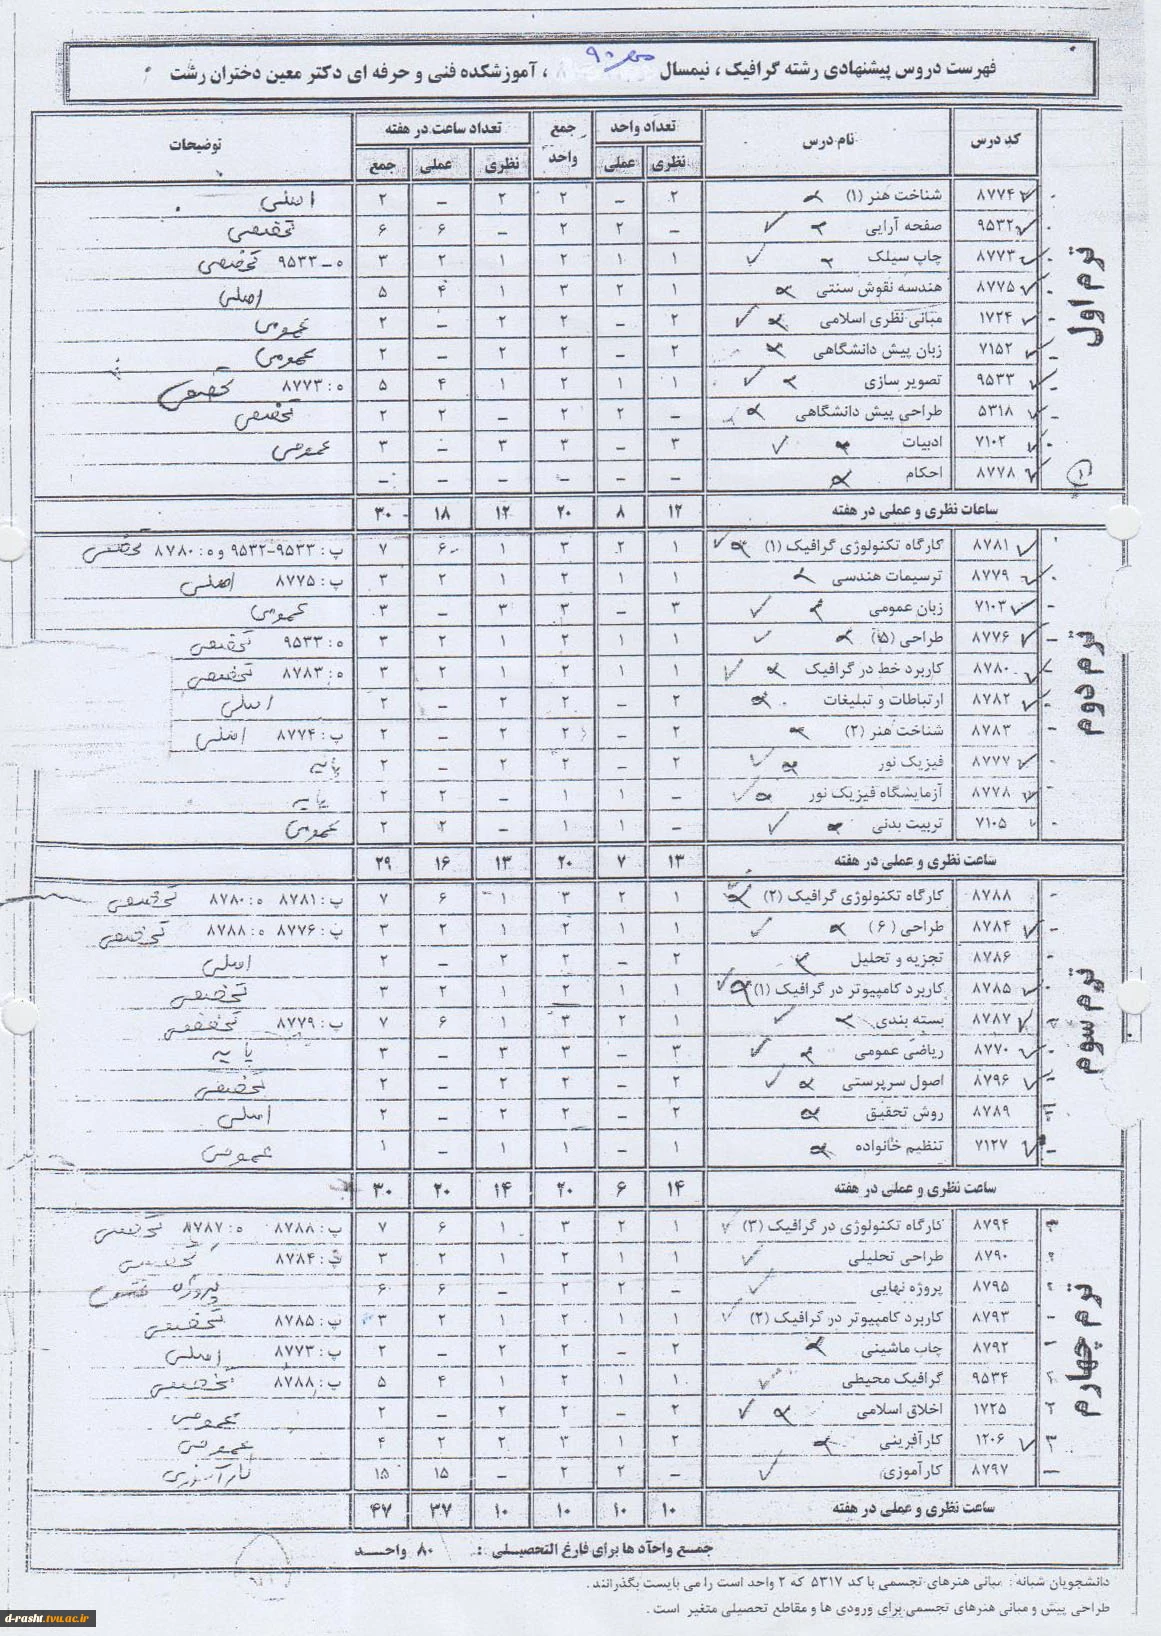 مهر ۹۰
فهرست دروس پیشنهادی رشته گرافیک ، نیمسال ، آموزشکده فنی و حرفه ای دکتر معین دختران رشت
کد درس نام درس تعداد واحد جمع واحد تعداد ساعت در هفته توضیحات
نظری عملی نظری عملی جمع
ترم اول
۸۷۷۴ شناخت هنر (۱) ۲ – ۲ ۲ – ۲ اصلی
۹۵۳۲ صفحه آرایی – ۲ ۲ – ۶ ۶ تخصصی
۸۷۷۳ چاپ سیلک ۱ ۱ ۲ ۱ ۲ ۳ ه – ۹۵۳۳ تخصصی
۸۷۷۵ هندسه نقوش سنتی ۱ ۲ ۳ ۱ ۴ ۵ اصلی
۱۷۲۴ مبانی نظری اسلامی ۲ – ۲ ۲ – ۲ عمومی
۷۱۵۲ زبان پیش دانشگاهی ۲ – ۲ ۲ – ۲ عمومی
۹۵۳۳ تصویر سازی ۱ ۱ ۲ ۱ ۴ ۵ ه : ۸۷۷۳ تخصصی
۵۳۱۸ طراحی پیش دانشگاهی – ۲ ۲ – ۲ ۲ تخصصی
۷۱۰۲ ادبیات ۳ – ۳ ۳ – ۳ عمومی
۸۷۷۸ احکام – – – – – –
ساعات نظری و عملی در هفته ۱۲ ۸ ۲۰ ۱۲ ۱۸ ۳۰
ترم دوم
۸۷۸۱ کارگاه تکنولوژی گرافیک (۱) ۱ ۲ ۳ ۱ ۶ ۷ پ : ۹۵۳۳-۹۵۳۲ و ه : ۸۷۸۰ تخصصی
۸۷۷۹ ترسیمات هندسی ۱ ۱ ۲ ۱ ۲ ۳ پ : ۸۷۷۵ اصلی
۷۱۰۳ زبان عمومی ۳ – ۳ ۳ – ۳ عمومی
۸۷۷۶ طراحی (۵) ۱ ۱ ۲ ۱ ۲ ۳ ه : ۹۵۳۳ تخصصی
۸۷۸۰ کاربرد خط در گرافیک ۱ ۱ ۲ ۱ ۲ ۳ ه : ۸۷۸۳ تخصصی
۸۷۸۲ ارتباطات و تبلیغات ۲ – ۲ ۲ – ۲ اصلی
۸۷۸۳ شناخت هنر (۲) ۲ – ۲ ۲ – ۲ پ : ۸۷۷۴ اصلی
۸۷۷۷ فیزیک نور ۲ – ۲ ۲ – ۲ پایه
۸۷۷۸ آزمایشگاه فیزیک نور – ۱ ۱ – ۲ ۲ پایه
۷۱۰۵ تربیت بدنی – ۱ ۱ – ۲ ۲ عمومی
ساعت نظری و عملی در هفته ۱۳ ۷ ۲۰ ۱۳ ۱۶ ۲۹
ترم سوم
۸۷۸۸ کارگاه تکنولوژی گرافیک (۲) ۱ ۲ ۳ ۱ ۶ ۷ پ : ۸۷۸۱ ه : ۸۷۸۰ تخصصی
۸۷۸۴ طراحی (۶) ۱ ۱ ۲ ۱ ۲ ۳ پ : ۸۷۷۶ ه : ۸۷۸۸ تخصصی
۸۷۸۶ تجزیه و تحلیل ۲ – ۲ ۲ – ۲ اصلی
۸۷۸۵ کاربرد کامپیوتر در گرافیک (۱) ۱ ۱ ۲ ۱ ۲ ۳ تخصصی
۸۷۸۷ بسته بندی ۱ ۲ ۳ ۱ ۶ ۷ پ : ۸۷۷۹ تخصصی
۸۷۷۰ ریاضی عمومی ۳ – ۳ ۳ – ۳ پایه
۸۷۹۶ اصول سرپرستی ۲ – ۲ ۲ – ۲ تخصصی
۸۷۸۹ روش تحقیق ۲ – ۲ ۲ – ۲ اصلی
۷۱۲۷ تنظیم خانواده ۱ – ۱ ۱ – ۱ عمومی
ساعت نظری و عملی در هفته ۱۴ ۶ ۲۰ ۱۴ ۲۰ ۳۰
ترم چهارم
۸۷۹۴ کارگاه تکنولوژی در گرافیک (۳) ۱ ۲ ۳ ۱ ۶ ۷ پ : ۸۷۸۸ ه : ۸۷۸۷ تخصصی
۸۷۹۰ طراحی تحلیلی ۱ ۱ ۲ ۱ ۲ ۳ پ : ۸۷۸۴ تخصصی
۸۷۹۵ پروژه نهایی – ۲ ۲ – ۶ ۶ پروژه
۸۷۹۳ کاربرد کامپیوتر در گرافیک (۲) ۱ ۱ ۲ ۱ ۲ ۳ پ : ۸۷۸۵ تخصصی
۸۷۹۲ چاپ ماشینی ۲ – ۲ ۲ – ۲ پ : ۸۷۷۳ اصلی
۹۵۳۴ گرافیک محیطی ۱ ۱ ۲ ۱ ۴ ۵ پ : ۸۷۸۸ تخصصی
۱۷۲۵ اخلاق اسلامی ۲ – ۲ ۲ – ۲ عمومی
۱۲۰۶ کارآفرینی ۲ ۱ ۳ ۲ ۲ ۴ عمومی
۸۷۹۷ کارآموزی – ۲ ۲ – ۱۵ ۱۵ کارآموزی
ساعت نظری و عملی در هفته ۱۰ ۱۰ ۱۰ ۱۰ ۳۷ ۴۷
جمع واحد ها برای فارغ التحصیلی : ۸۰ واحد
دانشجویان شبانه : مبانی هنرهای تجسمی با کد ۵۳۱۷ که ۲ واحد است را می بایست بگذرانند .
طراحی پیش و مبانی هنرهای تجسمی برای ورودی ها و مقاطع تحصیلی متغیر است .
d-rasht.tvu.ac.ir